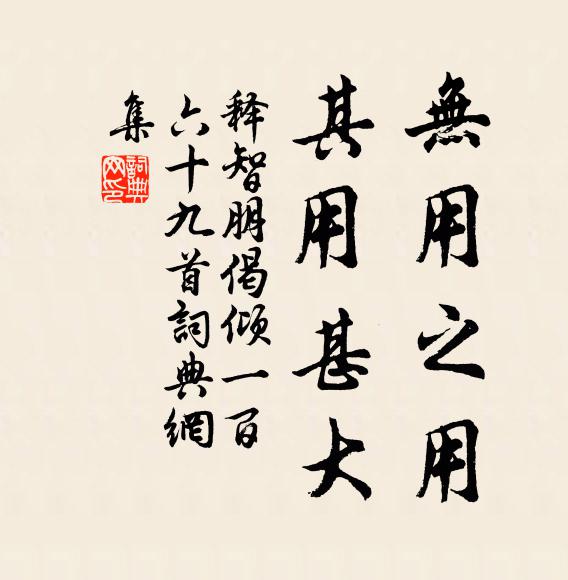 無用之用
其用甚大
释智朋偈倾一百
六十九首詞典網
集
詞典
网印